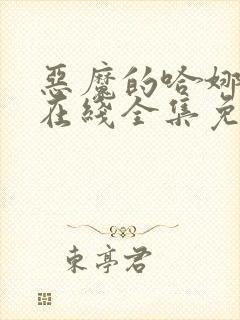 恶魔的哈娜
在线全集免
東亭君